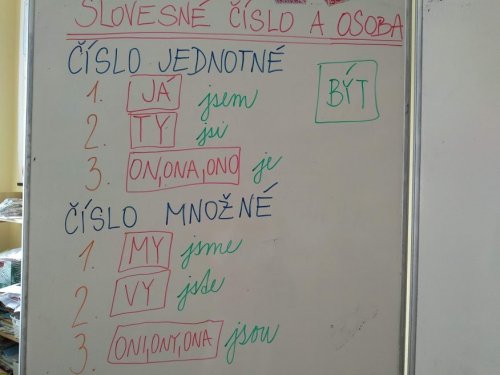 SLOVESNÉ ČÍSLO A OSOBA
ČÍSLO JEDNOTNÉ
1. JÁ jsem
BÝT
2. TY jsi
3. ON, ONA, ONO je
ČÍSLO MNOŽNÉ
1. MY jsme
2. VY jste
3. ONI, ONY, ONA jsou